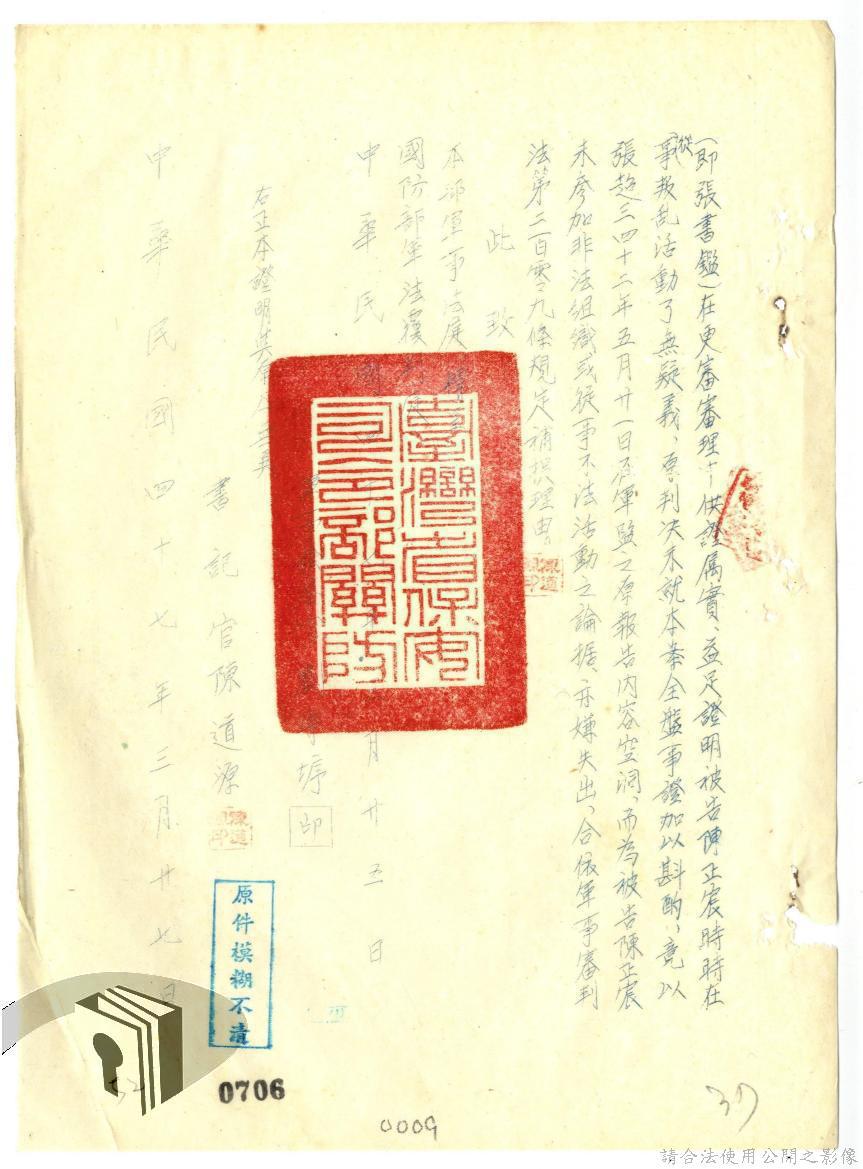 (即張書鑑)在更審審理中供證属實、益足證明被告陳正宸時時在
從
事叛乱活動了無疑義、原判决未就本案全盤事證加以斟酌、竟以
張超三四十二年五月廿一日在軍監之原報告内容空洞、而為被告陳正宸
未參加非法組織或從事不法活動之論据、亦嫌失出、合依軍事審判
法第二百零九條規定補提理由。
此致
本部軍事法庭
國防部軍法覆判
中華民國 月廿五日
印
右正本證明
書記官陳道源
中華民國四十七年三月廿七日
臺灣省保安司令部關防
原件模糊不清
0706
0009
37
52
請合法使用公開之影像